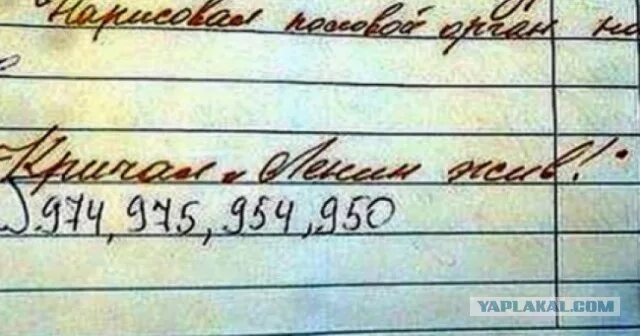 Нарисовал половой орган на
Кричал „Ленин жив!"
974, 975, 954, 950
YAPLAKAL.COM